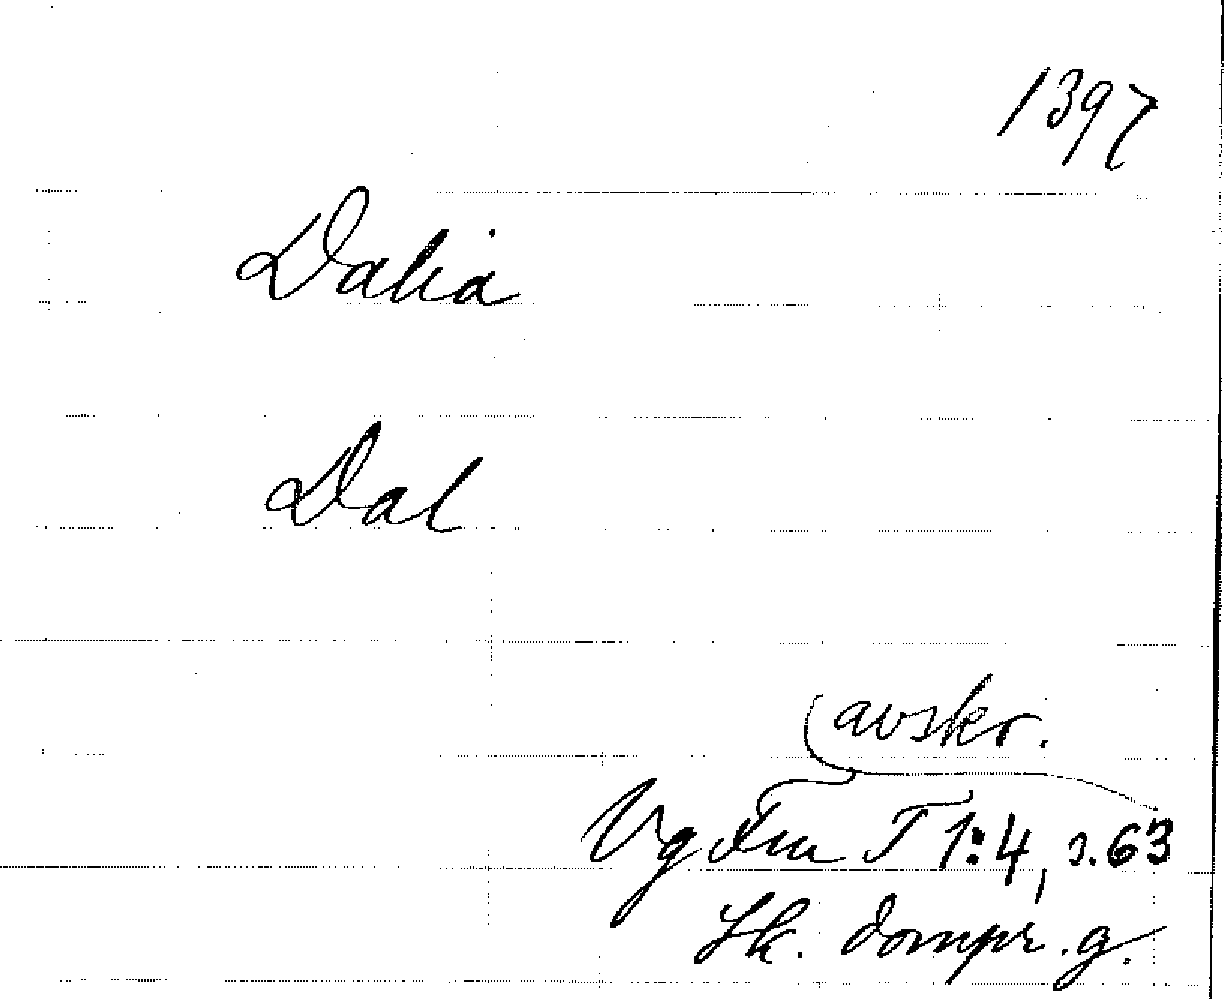 1397
Dalia
Dal
avskr.
Vg Fm T 1:4, s. 63
Sk. dompr. g.